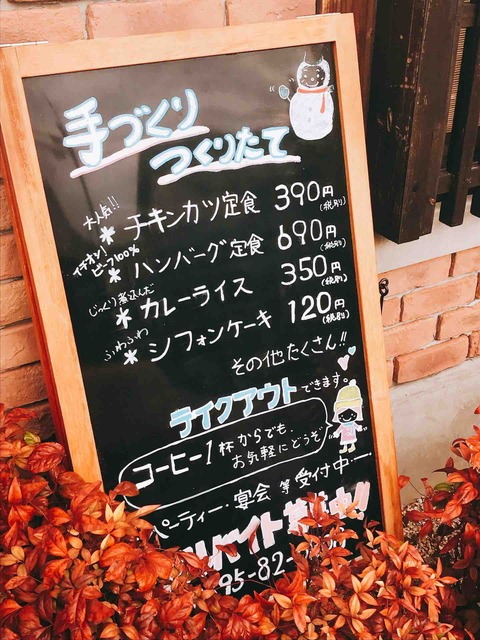 手づくり
つくりたて
大人気!!
* チキンカツ定食 390円(税別)
イチオシ!
ビーフ100%
* ハンバーグ定食 690円(税別)
じっくり煮込んだ
* カレーライス 350円(税別)
ふわふわ
* シフォンケーキ 120円(税別)
その他たくさん!!
テイクアウトできます。
コーヒー1杯からでも、
お気軽にどうぞ
パーティー・宴会等受付中
バイト
95-82-